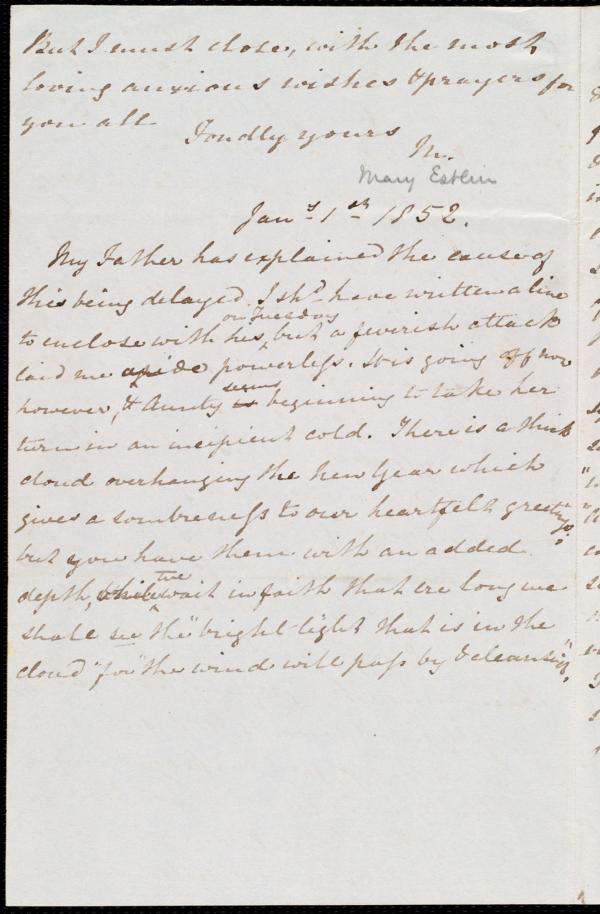 But I must close, with the most
loving anxious wishes & prayers for
you all.
Fondly yours
M.
Mary Estlin
Jan.y 1st 1852.
My Father has explained the cause of
this being delayed. I shd. have written a line
on Tuesday
to enclose with his, but a feverish attack
laid me aside powerless. It is going off now
seems
however, & Aunty is beginning to take her
turn in an incipient cold. There is a thick
cloud overhanging the New Year which
gives a sombreness to our heartfelt greetings:
but you have them with an added
we
depth, while wait in faith that ere long we
shall see the "bright light that is in the
cloud" for "the wind will pass by & cleanse it".